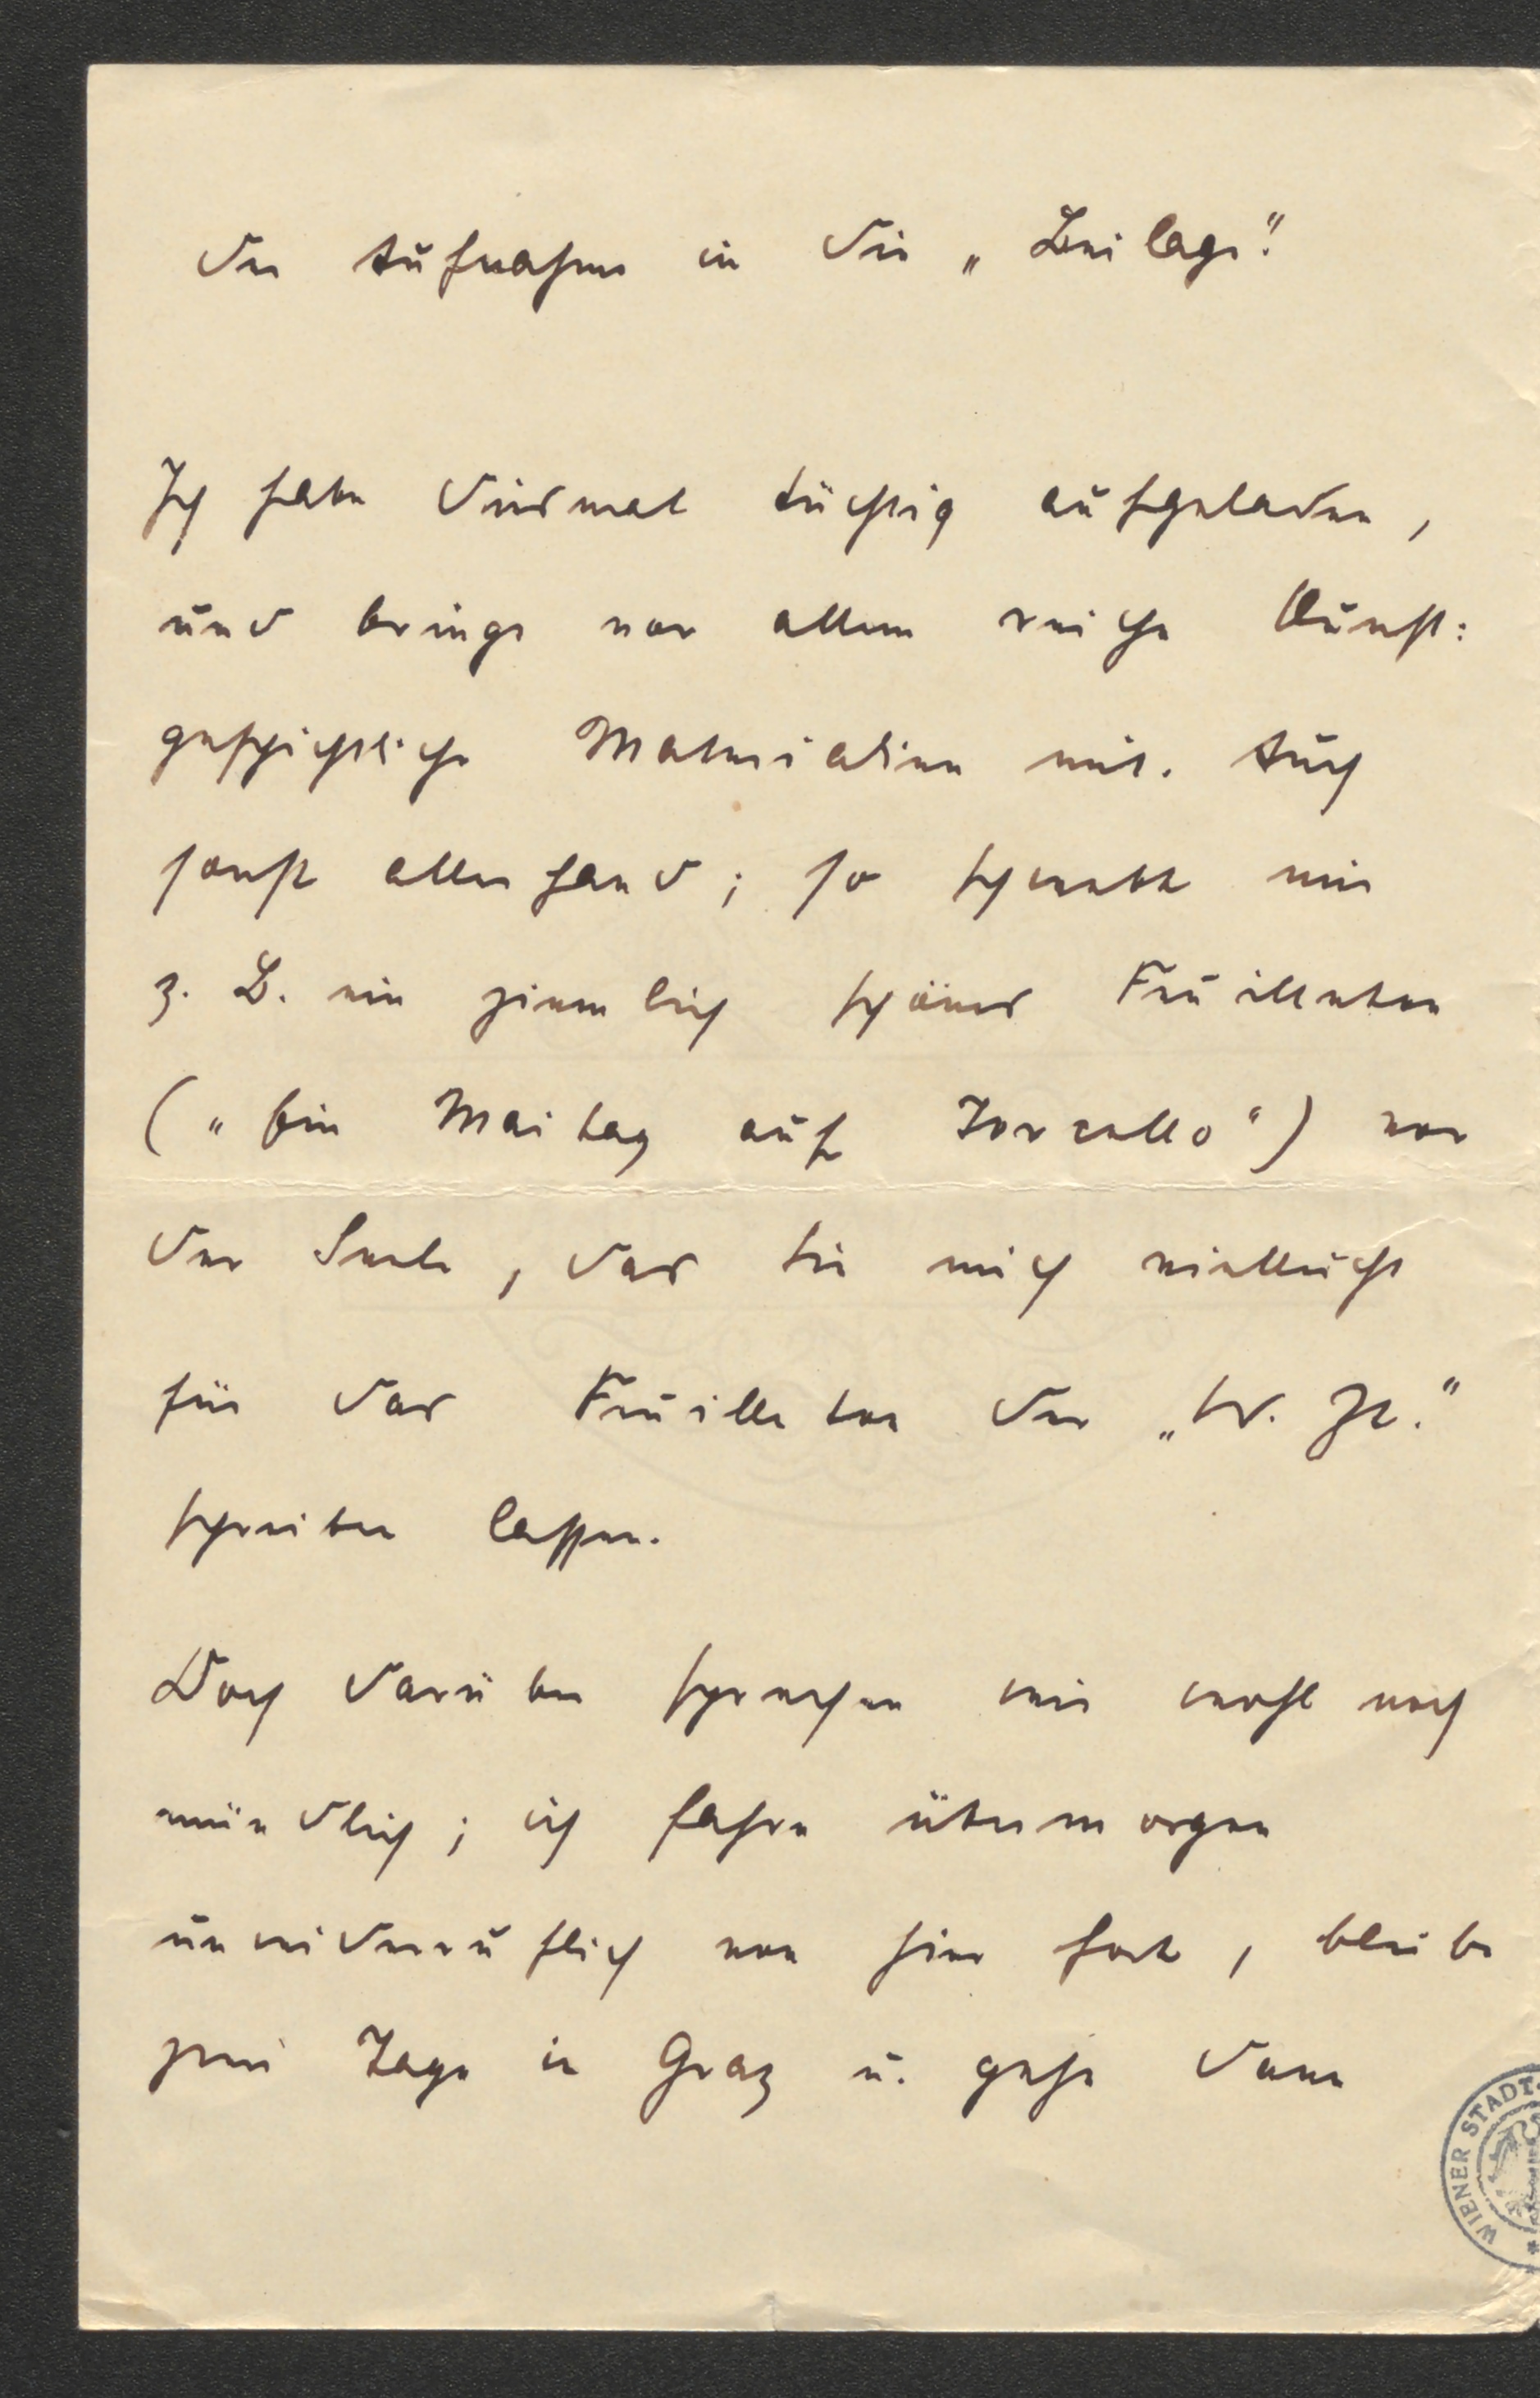 der Aufnahme in die „Beilage“.
Ich habe diesmal tüchtig aufgeladen,
und bringe vor allem reiche kunst:
geschichtliche Materialien mit. Auch
sonst allerhand; so schwebt mir
z. B. ein ziemlich schönes Feuilleton
(„Ein Maitag auf Torcello“) vor
der Seele, das Sie mich vielleicht
für das Feuilleton der „W. Zt.“
schreiben lassen.
Doch darüber sprechen wir wohl noch
mündlich; ich fahre übermorgen
unwiderruflich von hier fort, bleibe
zwei Tage in Graz u. gehe dann
WIENER STADT-